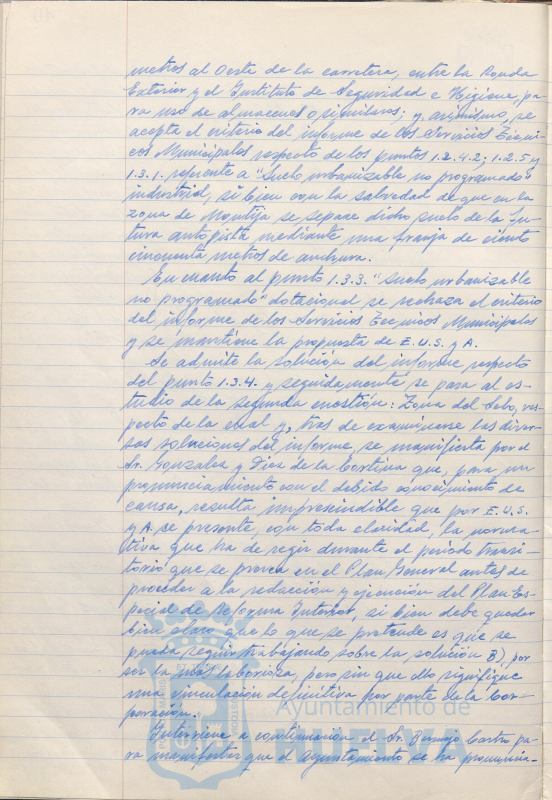 metros al Oeste de la carretera, entre la Ronda
Exterior y el Instituto de Seguridad e Higiene, pa-
ra uso de almacenes o similares; y, asimismo, se
acepta el criterio del informe de los Servicios Técni-
cos Municipales respecto de los puntos 1.2.4.2; 1.2.5 y
1.3.1. referente a "suelo urbanizable no programado"
industrial, si bien con la salvedad de que en la
zona de Montija se separe dicho suelo de la fu-
tura autopista mediante una franja de ciento
cincuenta metros de anchura.
En cuanto al punto 1.3.3. "suelo urbanizable
no programado" dotacional se rechaza el criterio
del informe de los Servicios Técnicos Municipales
y se mantiene la propuesta de E.U.S. y A.
Se admite la solución del informe respecto
del punto 1.3.4. y seguidamente se pasa al es-
tudio de la segunda cuestión: Zona del Sebo, res-
pecto de la cual y, tras de examinarse las diver-
sas soluciones del informe, se manifiesta por el
Sr. González y Díaz de la Cortina que, para un
pronunciamiento con el debido conocimiento de
causa, resulta imprescindible que por E.U.S.
y A. se presente, con toda claridad, la norma-
tiva que ha de regir durante el período transi-
torio que se provea en el Plan General antes de
proceder a la redacción y ejecución del Plan Es-
pecial de Reforma Interior, si bien debe quedar
bien claro que lo que se pretende es que se
pueda seguir trabajando sobre la solución B), por
ser la más laboriosa, pero sin que ello signifique
una vinculación definitiva por parte de la Cor-
poración.
Interviene a continuación el Sr. Bermejo Castro pa-
ra manifestar que el Ayuntamiento se ha pronuncia-
Ayuntamiento de
HUELVA